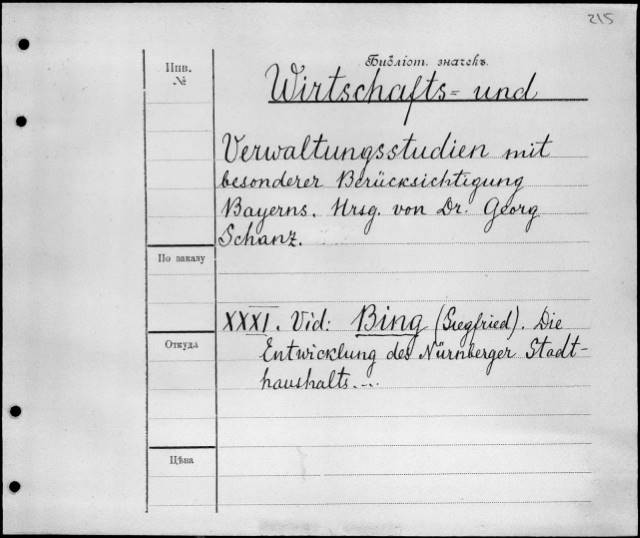 215
Библіот. значекъ.
Инв.
№
Wirtschafts= und
Verwaltungsstudien mit
besonderer Berücksichtigung
Bayerns. Hrsg. von Dr. Georg
Schanz.
По заказу
XXXI. Vid: Bing (Siegfried). Die
Откуда
Entwicklung des Nürnberger Stadt-
haushalts....
Цѣна